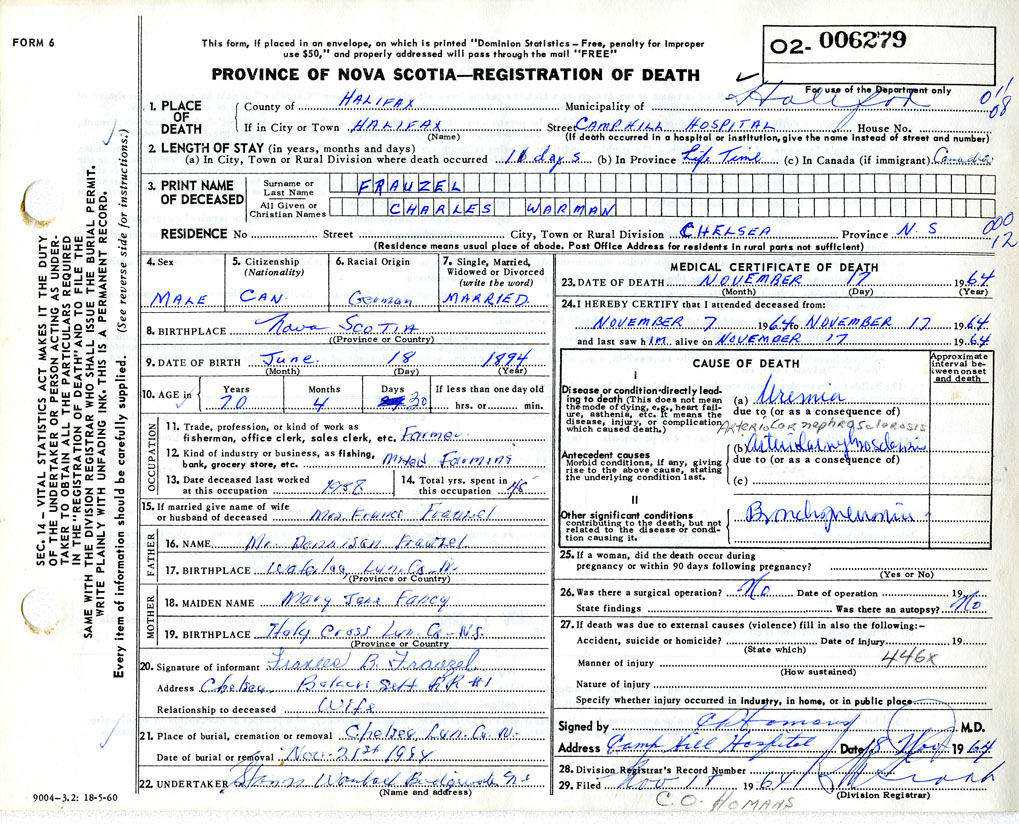 FORM 6
This form, if placed in an envelope, on which is printed "Dominion Statistics – Free, penalty for improper
use $50," and properly addressed will pass through the mail "FREE"
PROVINCE OF NOVA SCOTIA—REGISTRATION OF DEATH
02- 006279
For use of the Department only
Halifax
01
08
SEC. 14 – VITAL STATISTICS ACT MAKES IT THE DUTY
OF THE UNDERTAKER OR PERSON ACTING AS UNDER-
TAKER TO OBTAIN ALL THE PARTICULARS REQUIRED
IN THE "REGISTRATION OF DEATH" AND TO FILE THE
SAME WITH THE DIVISION REGISTRAR WHO SHALL ISSUE THE BURIAL PERMIT.
WRITE PLAINLY WITH UNFADING INK. THIS IS A PERMANENT RECORD.
Every item of information should be carefully supplied. (See reverse side for instructions.)
1. PLACE OF DEATH
County of HALIFAX Municipality of
If in City or Town HALIFAX Street CAMP HILL HOSPITAL House No.
(Name) (If death occurred in a hospital or institution, give the name instead of street and number)
2. LENGTH OF STAY (in years, months and days)
(a) In City, Town or Rural Division where death occurred 10 days (b) In Province Life Time (c) In Canada (if immigrant) Canada
3. PRINT NAME OF DECEASED
Surname or Last Name FRAUZEL
All Given or Christian Names CHARLES WARMAN
RESIDENCE No Street City, Town or Rural Division CHELSEA Province N.S
000
12
(Residence means usual place of abode. Post Office Address for residents in rural parts not sufficient)
4. Sex MALE
5. Citizenship (Nationality) CAN.
6. Racial Origin German
7. Single, Married, Widowed or Divorced (write the word) MARRIED.
8. BIRTHPLACE Nova SCOTIA
(Province or Country)
9. DATE OF BIRTH June 18 1894
(Month) (Day) (Year)
10. AGE in Years 70 Months 4 Days 30 If less than one day old hrs. or min.
OCCUPATION
11. Trade, profession, or kind of work as
fisherman, office clerk, sales clerk, etc. Farmer
12. Kind of industry or business, as fishing,
bank, grocery store, etc. Mixed Farming
13. Date deceased last worked at this occupation 1958
14. Total yrs. spent in this occupation 45
15. If married give name of wife
or husband of deceased Mrs. France Frauzel
FATHER
16. NAME Mr. Dennison Frauzel
17. BIRTHPLACE Waterloo, Lun. Co. N.
(Province or Country)
MOTHER
18. MAIDEN NAME Mary Jane Fancy
19. BIRTHPLACE Holy Cross Lun. Co. N.S.
(Province or Country
20. Signature of informant Frances B. Frauzel
Address Chelsea, Baker Sett RR#1
Relationship to deceased Wife
21. Place of burial, cremation or removal Chelsea Lun. Co. N.
Date of burial or removal Nov. 21st
22. UNDERTAKER
(Name and address)
9004-3.2: 18-5-60
MEDICAL CERTIFICATE OF DEATH
23. DATE OF DEATH NOVEMBER 17 1964
(Month) (Day) (Year)
24. I HEREBY CERTIFY that I attended deceased from:
NOVEMBER 7 1964 to NOVEMBER 17 1964
and last saw him alive on NOVEMBER 17 1964
CAUSE OF DEATH
Approximate interval be-tween onset and death
I
Disease or condition directly lead-
ing to death (This does not mean
the mode of dying, e.g., heart fail-
ure, asthenia, etc. It means the
disease, injury, or complication
which caused death.)
(a) Uremia
due to (or as a consequence of)
ARTERIOLAR nephrosclerosis
Antecedent causes
Morbid conditions, if any, giving
rise to the above cause, stating
the underlying condition last.
(b)
due to (or as a consequence of)
(c)
II
Other significant conditions
contributing to the death, but not
related to the disease or condi-
tion causing it.
Bronchopneumonia
25. If a woman, did the death occur during
pregnancy or within 90 days following pregnancy?
(Yes or No)
26. Was there a surgical operation? No Date of operation 19
State findings Was there an autopsy? No
27. If death was due to external causes (violence) fill in also the following:–
Accident, suicide or homicide? Date of injury 19
(State which)
446X
Manner of injury
(How sustained)
Nature of injury
Specify whether injury occurred in industry, in home, or in public place
Signed by C. O. Homans M.D.
Address Camp Hill Hospital Date 18 Nov 1964
28. Division Registrar's Record Number
29. Filed Nov 19 1964
(Division Registrar)
C. O. HOMANS